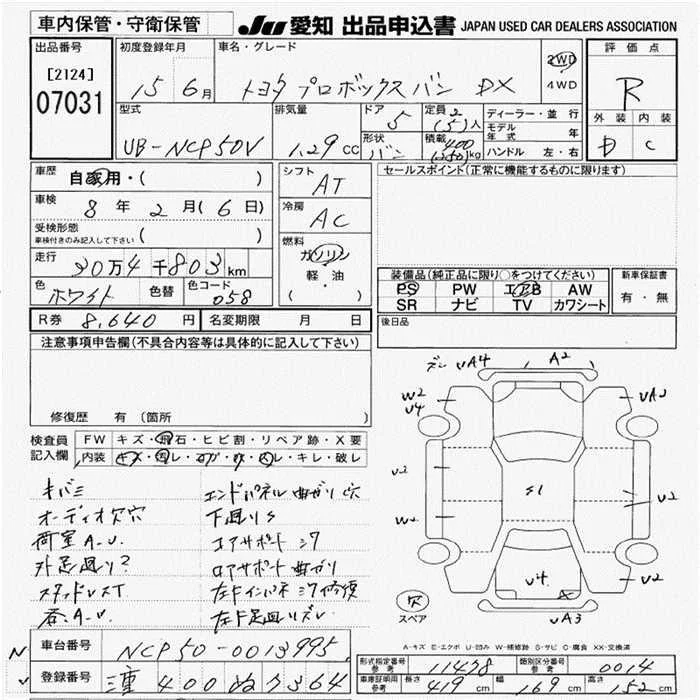 車内保管・守衛保管
JU 愛知 出品申込書 JAPAN USED CAR DEALERS ASSOCIATION
出品番号
[2124]
07031
初度登録年月
15年 6月
車名・グレード
トヨタ プロボックスバン DX
2WD
4WD
評価点
R
外装 内装
D C
型式
UB-NCP50V
排気量
1.29 cc
ドア
5
形状
バン
定員 2
(5)人
積載 400
(250)kg
ディーラー・並行
モデル年式 年
ハンドル 左・右
車歴
自家用・( )
車検
8年 2月(6日)
受検形態
車検付きのみ記入して下さい ( )
走行
30万4千803km
色
ホワイト
色替
色コード
058
シフト
AT
冷房
AC
燃料
ガソリン
軽・油
( ・ )
セールスポイント(正常に機能するものに限ります)
装備品(純正品に限り○をつけてください)
PS PW エアB AW
SR ナビ TV カワシート
新車保証書
有・無
R券 8,640 円
名変期限 月 日
後日品
注意事項申告欄(不具合内容等は具体的に記入して下さい)
修復歴 有 (箇所 )
検査員記入欄
FW キズ・飛石・ヒビ割・リペア跡・X要
内装 キズ・汚レ・コゲ・穴・スレ・キレ・破レ
キバミ
オーディオ欠穴
荷室A.U.
外足廻り?
スタッドレスT
呑.A.U
エンドパネル曲がり穴
下廻りS
コアサポート ヅク
ロアサポート曲がり
左Fインパネ ヅク修復
左F足廻りズレ
デレ UA4
A2
W2
U4
UA2
U2
W2
S1
U2
U4
U2
UA3
スペア
A-キズ E-エクボ U-凹み W-補修跡 S-サビ C-腐食 XX-交換済
車台番号
NCP50-0013995
登録番号
400 ぬ 7364
形式指定番号 参考
11478
類別区分番号 参考
0014
車庫証明用 参考
長さ 419 cm 幅 169 cm 高さ 152 cm